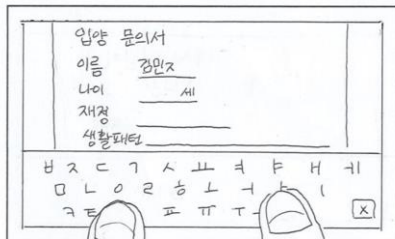 입양 문의서
이름 김민ㅈ
나이 세
재정
생활패턴
ㅂ ㅈ ㄷ ㄱ ㅅ ㅛ ㅕ ㅑ ㅐ ㅔ
ㅁ ㄴ ㅇ ㄹ ㅎ ㅗ ㅓ ㅏ ㅣ
ㅋ ㅌ ㅍ ㅠ ㅜ X